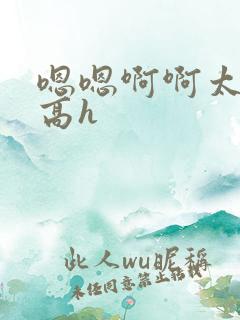 嗯嗯啊啊太
高h
此人wu昵稱
未经同意禁止转载